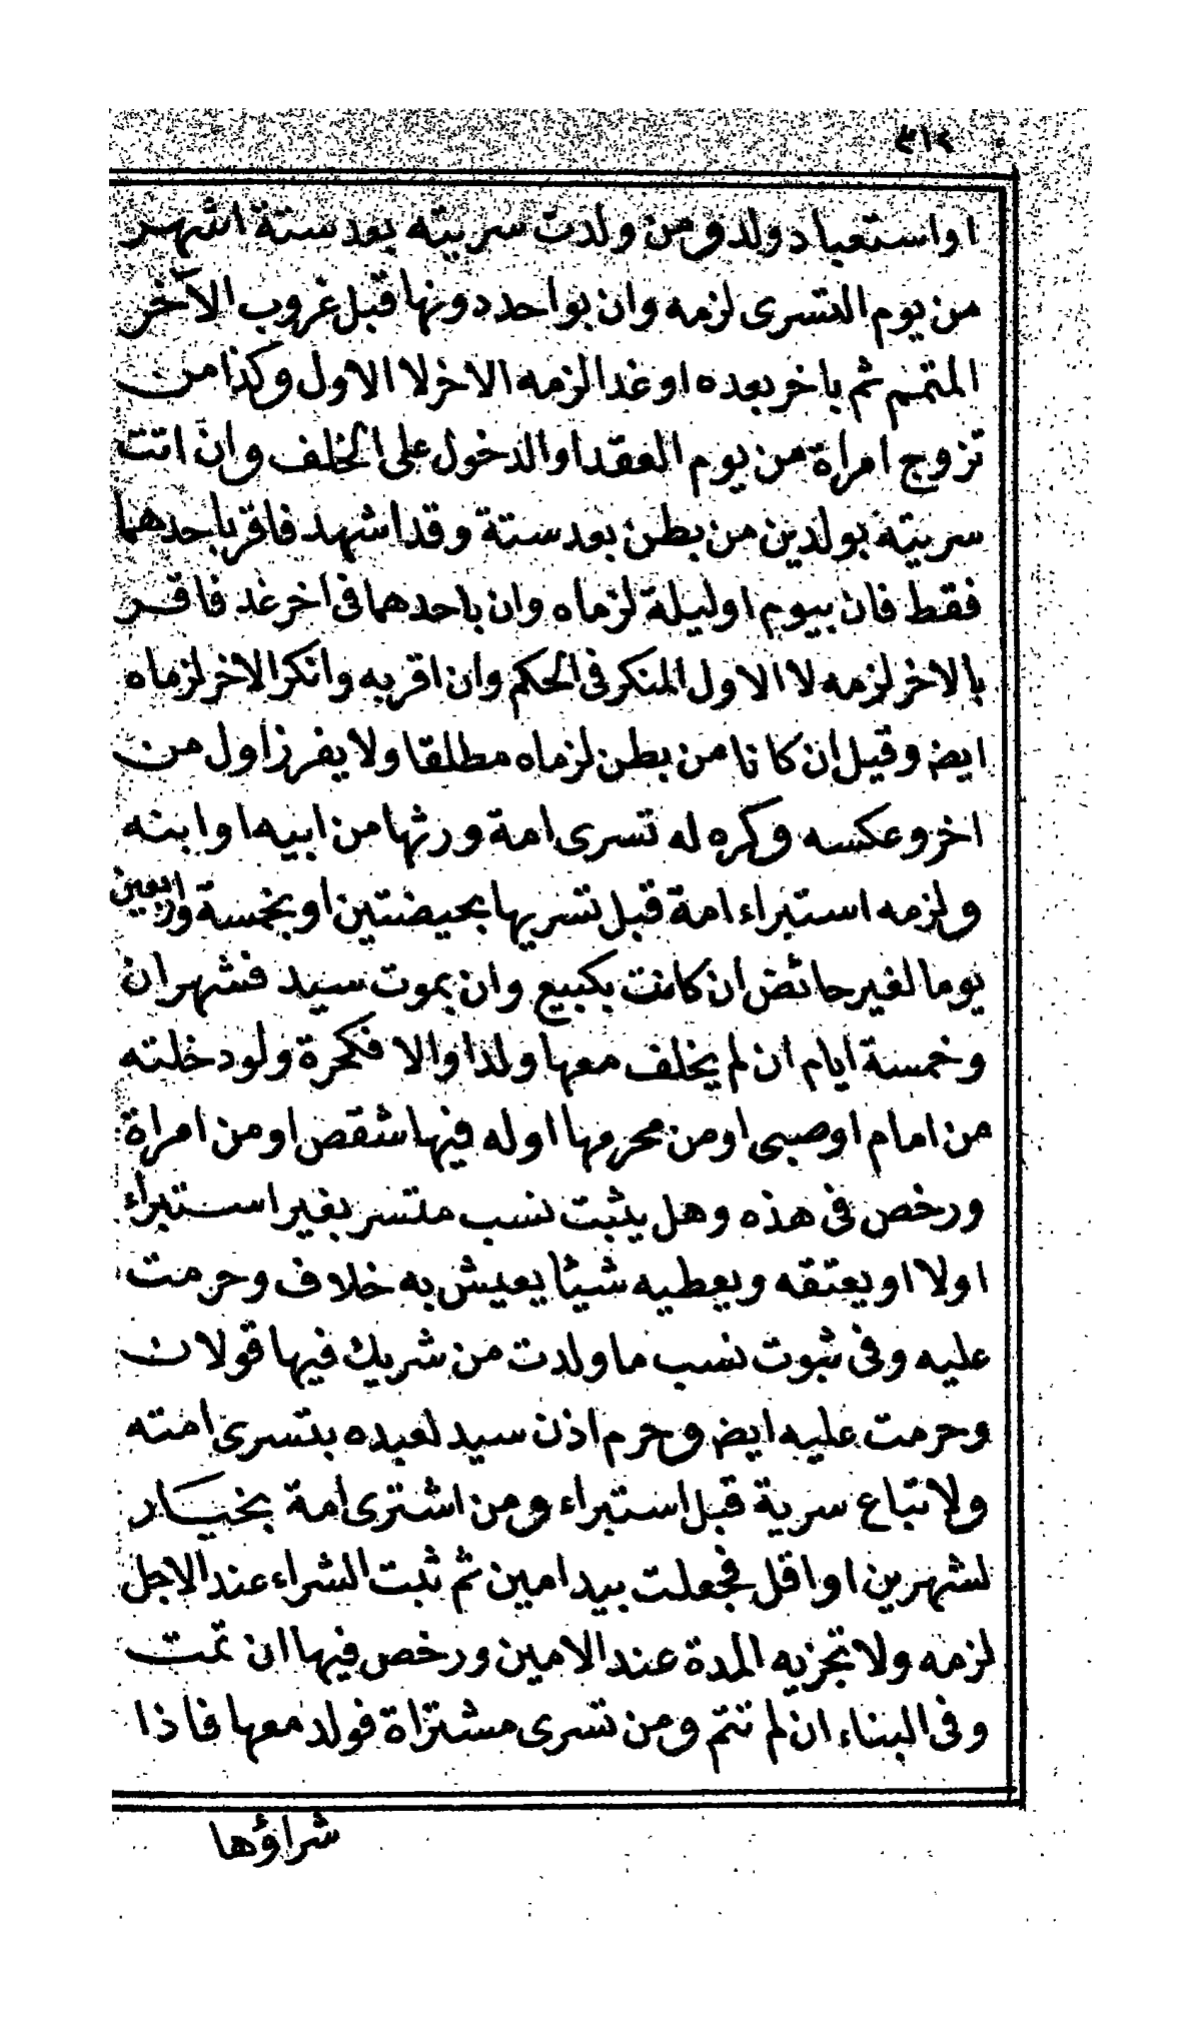 ٣١٢
او استعباد ولد ومن ولدت سريته بعد ستة اشهر
من يوم التسرى لزمه وان بواحد دونها قبل غروب الآخر
المتمم ثم باخر بعده او غدا لزمه الاخر لا الاول وكذا من
تزوج امراة من يوم العقد او الدخول على الخلف وان اتت
سريته بولدين من بطن بعد ستة وقد اشهد فاقر باحدهما
فقط فان بيوم او ليلة لزماه وان باحدهما فى اخر غد فاقر
بالاخر لزمه لا الاول المنكر فى الحكم وان اقر به وانكر الاخر لزماه
ايض وقيل ان كانا من بطن لزماه مطلقا ولا يفرز اول من
اخر وعكسه وكره له تسرى امة ورثها من ابيه او ابنه
ولزمه استبراء امة قبل تسريها بحيضتين او بخمسة واربعين
يوما لغير حائض ان كانت بكبيع وان بموت سيد فشهران
وخمسة ايام ان لم يخلف معها ولدا والا فكحرة ولو دخلته
من امام او صبى او من محرمها او له فيها شقص او من امراة
ورخص فى هذه وهل يثبت نسب متسر بغير استبراء
اولا او يعتقه ويعطيه شيئا يعيش به خلاف وحرمت
عليه وفى ثبوت نسب ما ولدت من شريك فيها قولان
وحرمت عليه ايض وحرم اذن سيد لعبده بتسرى امته
ولا تباع سرية قبل استبراء ومن اشترى امة بخيار
لشهرين او اقل فجعلت بيد امين ثم ثبت الشراء عند الاجل
لزمه ولا تجزيه المدة عند الامين ورخص فيها ان تمت
وفى البناء ان لم تتم ومن تسرى مشتراة فولد معها فاذا
شراؤها